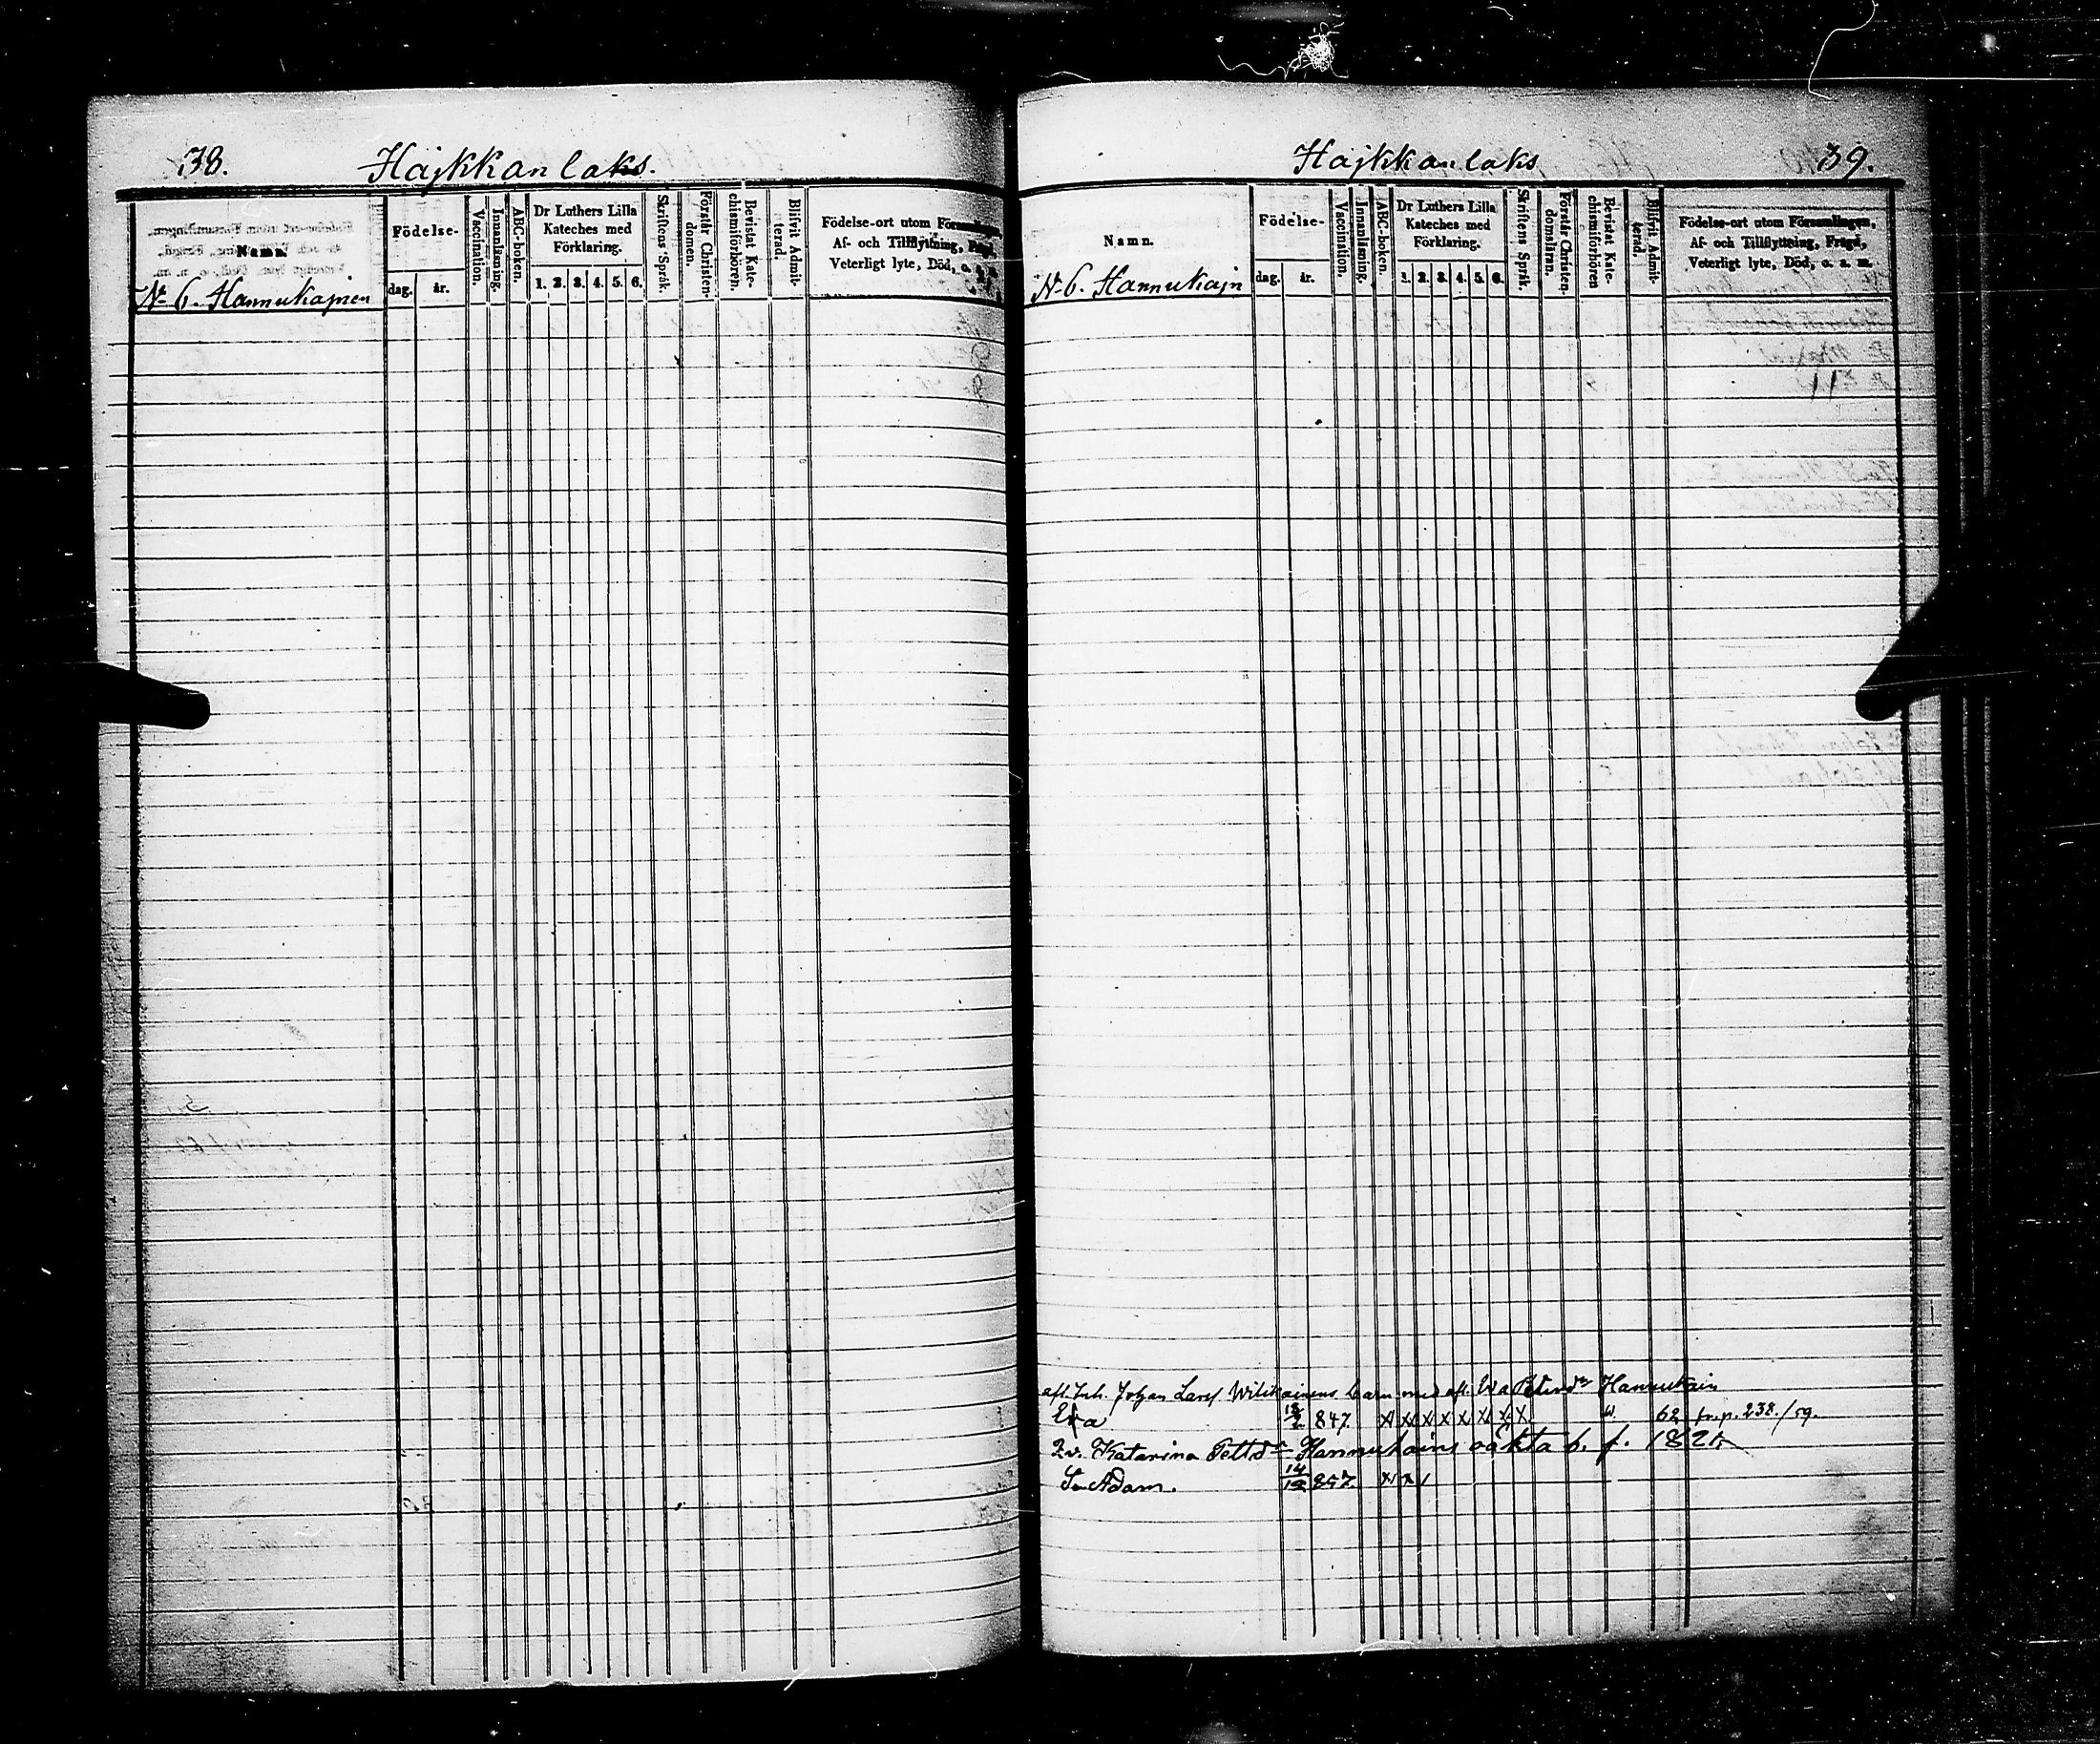 38. Hajkkanlaks.
Namn.
Födelse-
dag. år.
Vaccination.
Innanläsning.
ABC-boken.
Dr Luthers Lilla
Kateches med
Förklaring.
1. 2. 3. 4. 5. 6.
Skriftens Språk.
Förstår Christen-
domen.
Bevistat Kate-
chismiförhören.
Blifvit Admit-
terad.
Födelse-ort utom Församlingen,
Af- och Tillflyttning, Frägd,
Veterligt lyte, Död, o. s. v.
N. 6. Hannukajnen
Hajkkanlaks 39.
Namn.
Födelse-
dag. år.
Vaccination.
Innanläsning.
ABC-boken.
Dr Luthers Lilla
Kateches med
Förklaring.
1. 2. 3. 4. 5. 6.
Skriftens Språk.
Förstår Christen-
domsläran.
Bevistat Kate-
chismiförhören
Blifvit Admit-
terad.
Födelse-ort utom Församlingen,
Af- och Tillflyttning, Frägd,
Veterligt lyte, Död, o. s. m.
N. 6. Hannukajn
afl. Inh. Johan Larsf Wilikainens barn med afl. Hannukain
Eva 847. X X X X X X X X 62 tr. p. 238./59.
Katarina Pettsdr Hannukains oäkta b. f. 182
Son Adam. 14/12 857. X X /